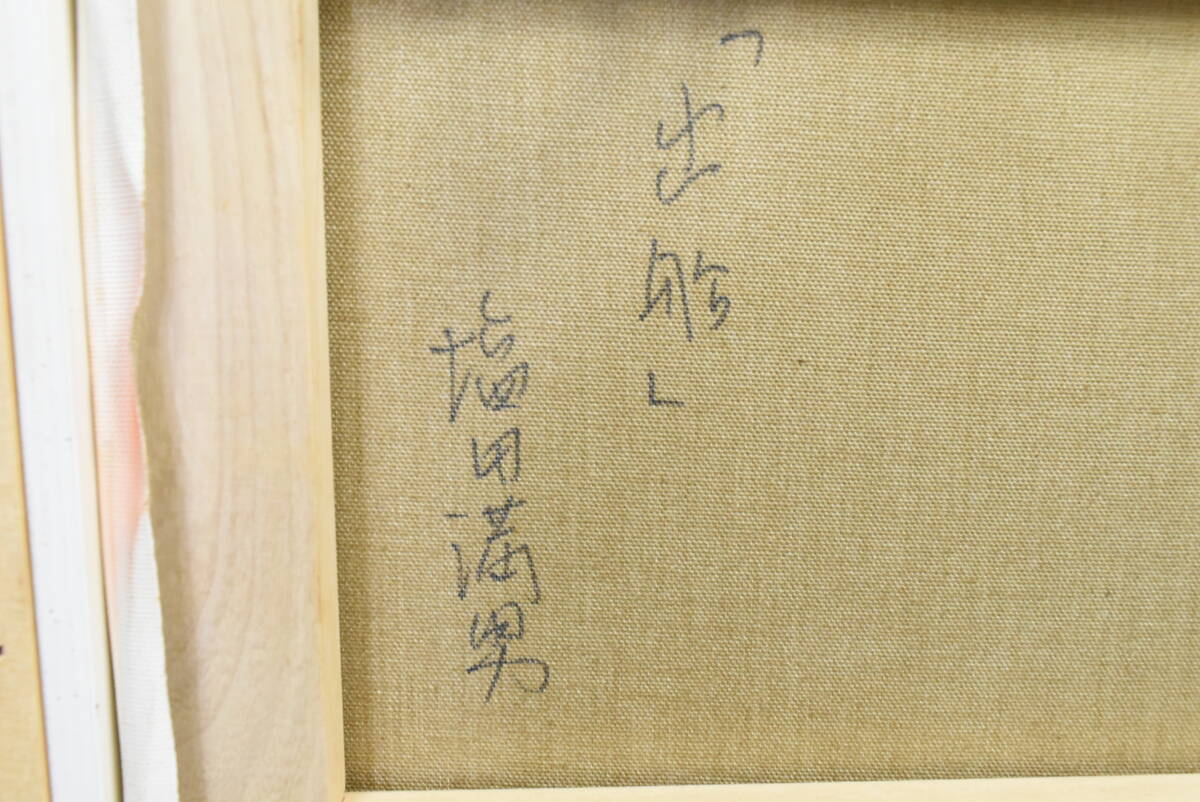 「出船」
塩田満男